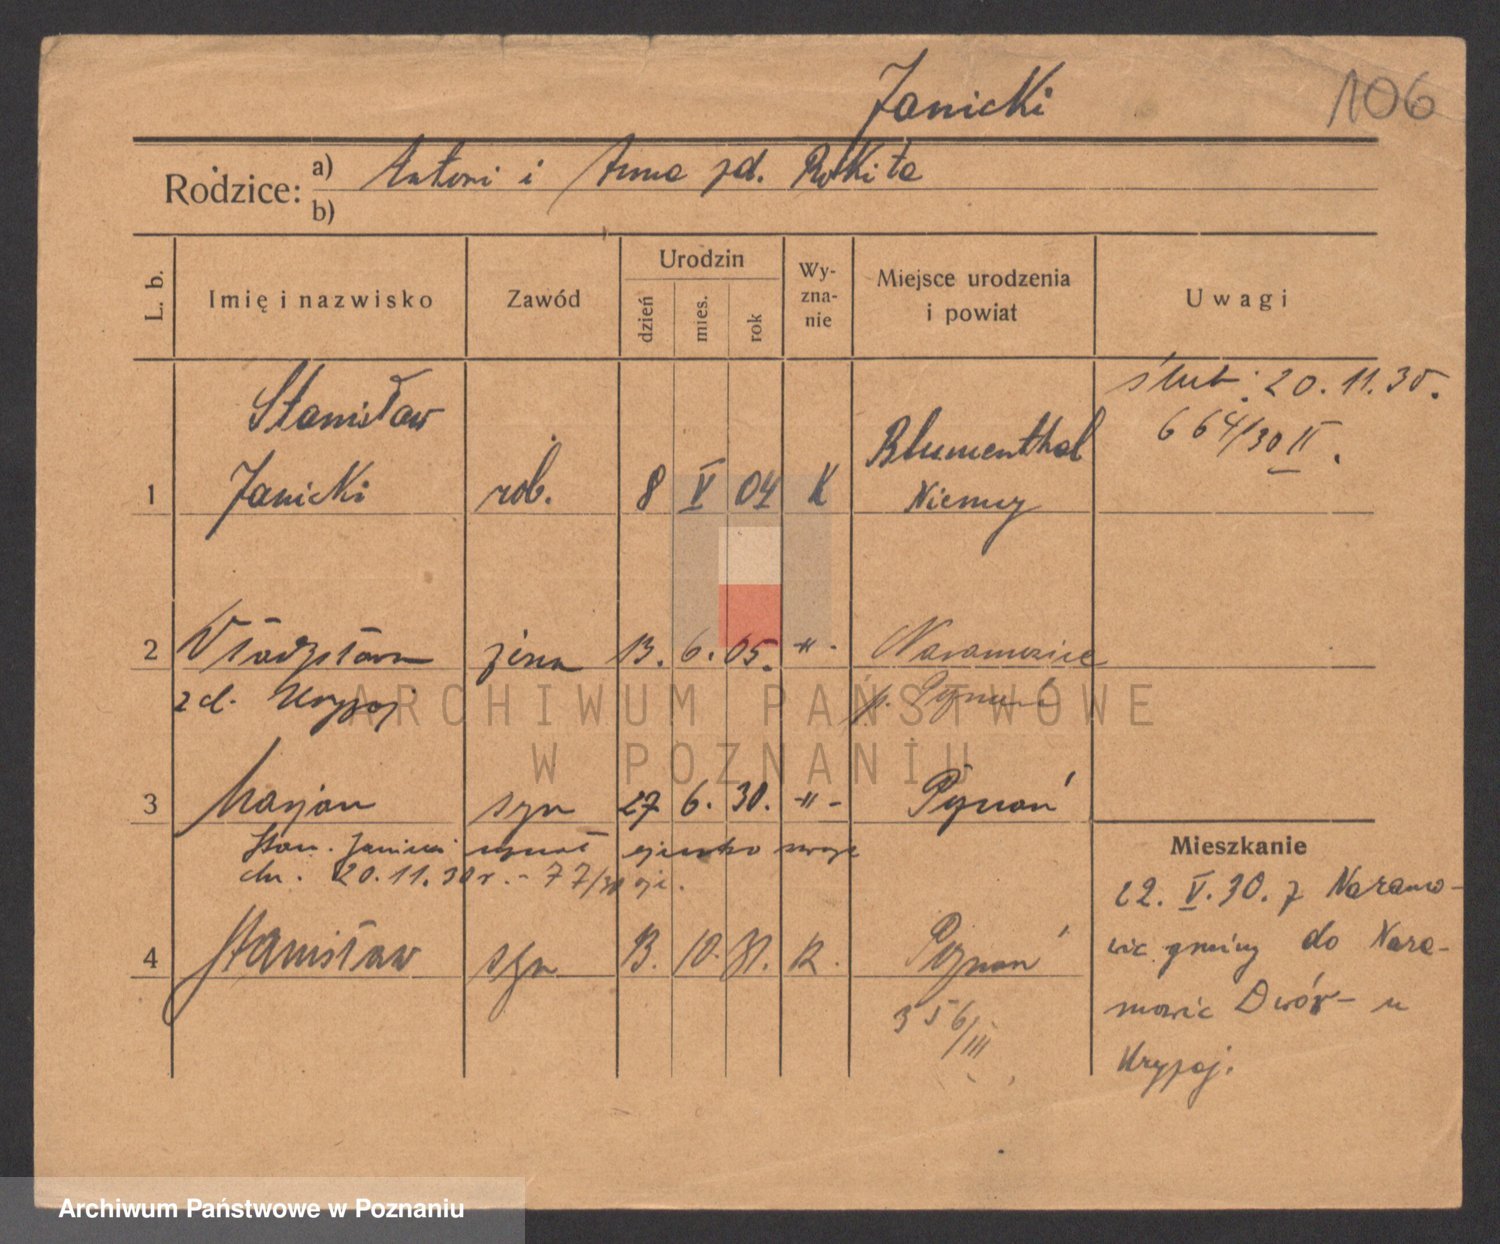 Janicki 106
Rodzice: a) Antoni i Anna zd. Rokita
b)
L. b. Imię i nazwisko Zawód Urodzin dzień mies. rok Wyznanie Miejsce urodzenia i powiat Uwagi
ślub: 20.11.30.
664/30 II.
Stanisław
1 Janicki rob. 8 V 04 K Blumenthal
Niemcy
2 Władysława żona 13. 6. 05. -"- Naramowice
zd. Krzyżoj p. Poznań
3 Marjan syn 27 6. 30. -"- Poznań
Stan. Janicki uznał ojcostwo swoje
dn. 20.11.30 r. - 77/30
4 Stanisław syn 13. 10. 31. K. Poznań
356/III
Mieszkanie
22. V. 30. z Naramo-
wic gminy do Nara-
mowic Dwór - u
Krzyżoj.
ARCHIWUM PAŃSTWOWE
W POZNANIU
Archiwum Państwowe w Poznaniu